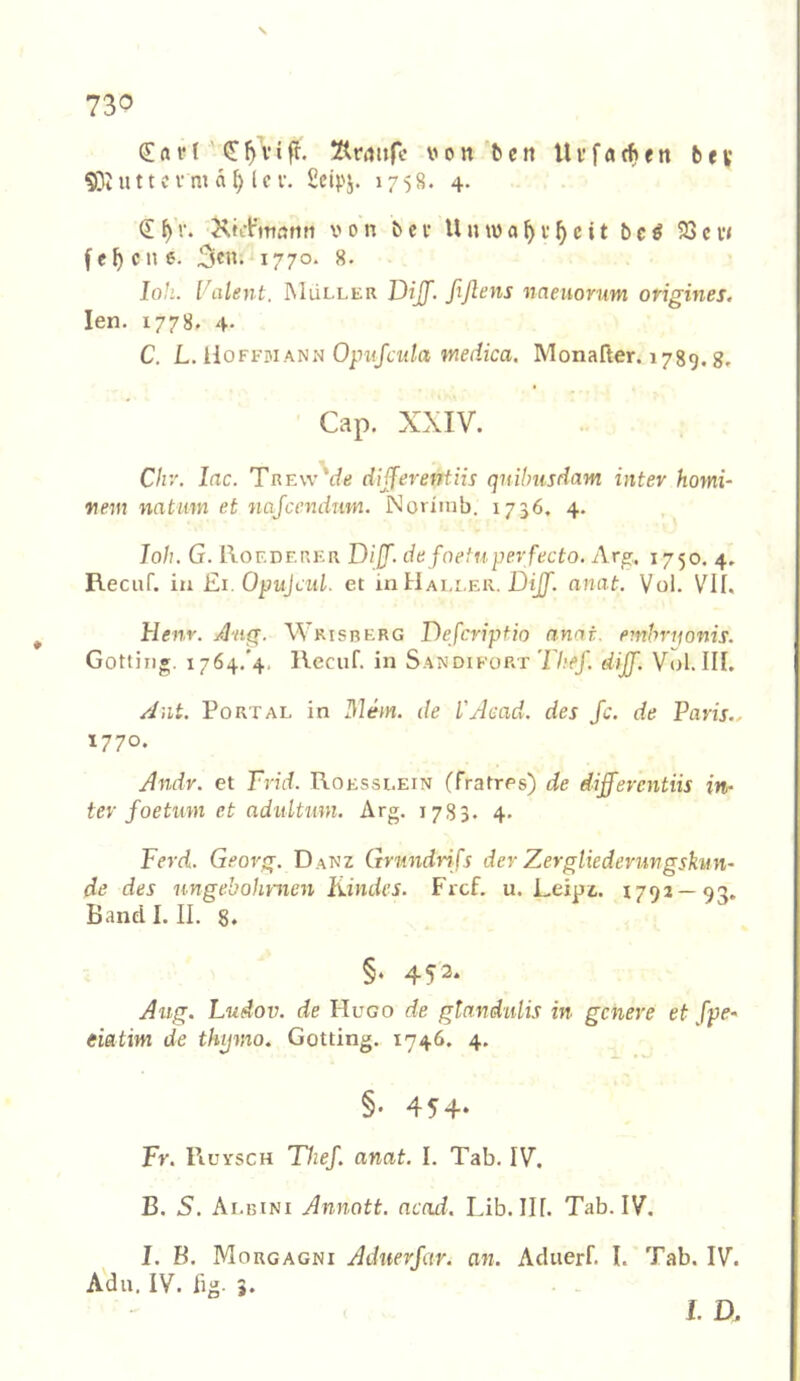 730
Carl Chriſt. Krauſe von den Urſachen der
Muttermähler. Leipz. 1758. 4.
Chr. Rickmann von der Unwahrheit des Ver⸗
ſehens. Jen. 1770. 8.
Ioh. Valent. Müller Diſſ. ſiſtens naeuorum origines.
Ien. 1778. 4.
C. L. Hoffmann Opuſcula medica. Monaſter. 1789. 8.
Cap. XXIV.
Chr. Iac. Trew de differentiis quibusdam inter homi-
nem natum et naſcendum. Norimb. 1736. 4.
Ioh. G. Roederer Diſſ. de foetu perfecto. Arg. 1750. 4.
Recuſ. in Ei. Opuſcul. et in Haller. Diſſ. anat. Vol. VII.
Henr. Aug. Wrisberg Deſcriptio anat. embryonis.
Gotting. 1764. 4. Recuſ. in Sandifort Theſ. diſſ. Vol. III.
Ant. Portal in Mém. de l'Acad. des ſc. de Paris.
1770.
Andr. et Frid. Roesslein (fratres) de differentiis in-
ter foetum et adultum. Arg. 1783. 4.
Ferd. Georg. Danz Grundriſs der Zergliederungskun-
de des ungebohrnen Kindes. Frcf. u. Leipz. 1792–93.
Band I. II. 8.
§. 452.
Aug. Ludov. de Hugo de glandulis in genere et ſpe-
ciatim de thymo. Gotting. 1746. 4.
§. 454.
Fr. Ruysch Theſ. anat. I. Tab. IV.
B. S. Albini Annott. acad. Lib. III. Tab. IV.
I. B. Morgagni Aduerſar. an. Aduerſ. I. Tab. IV.
Adu. IV. fig. 3.
I. D.